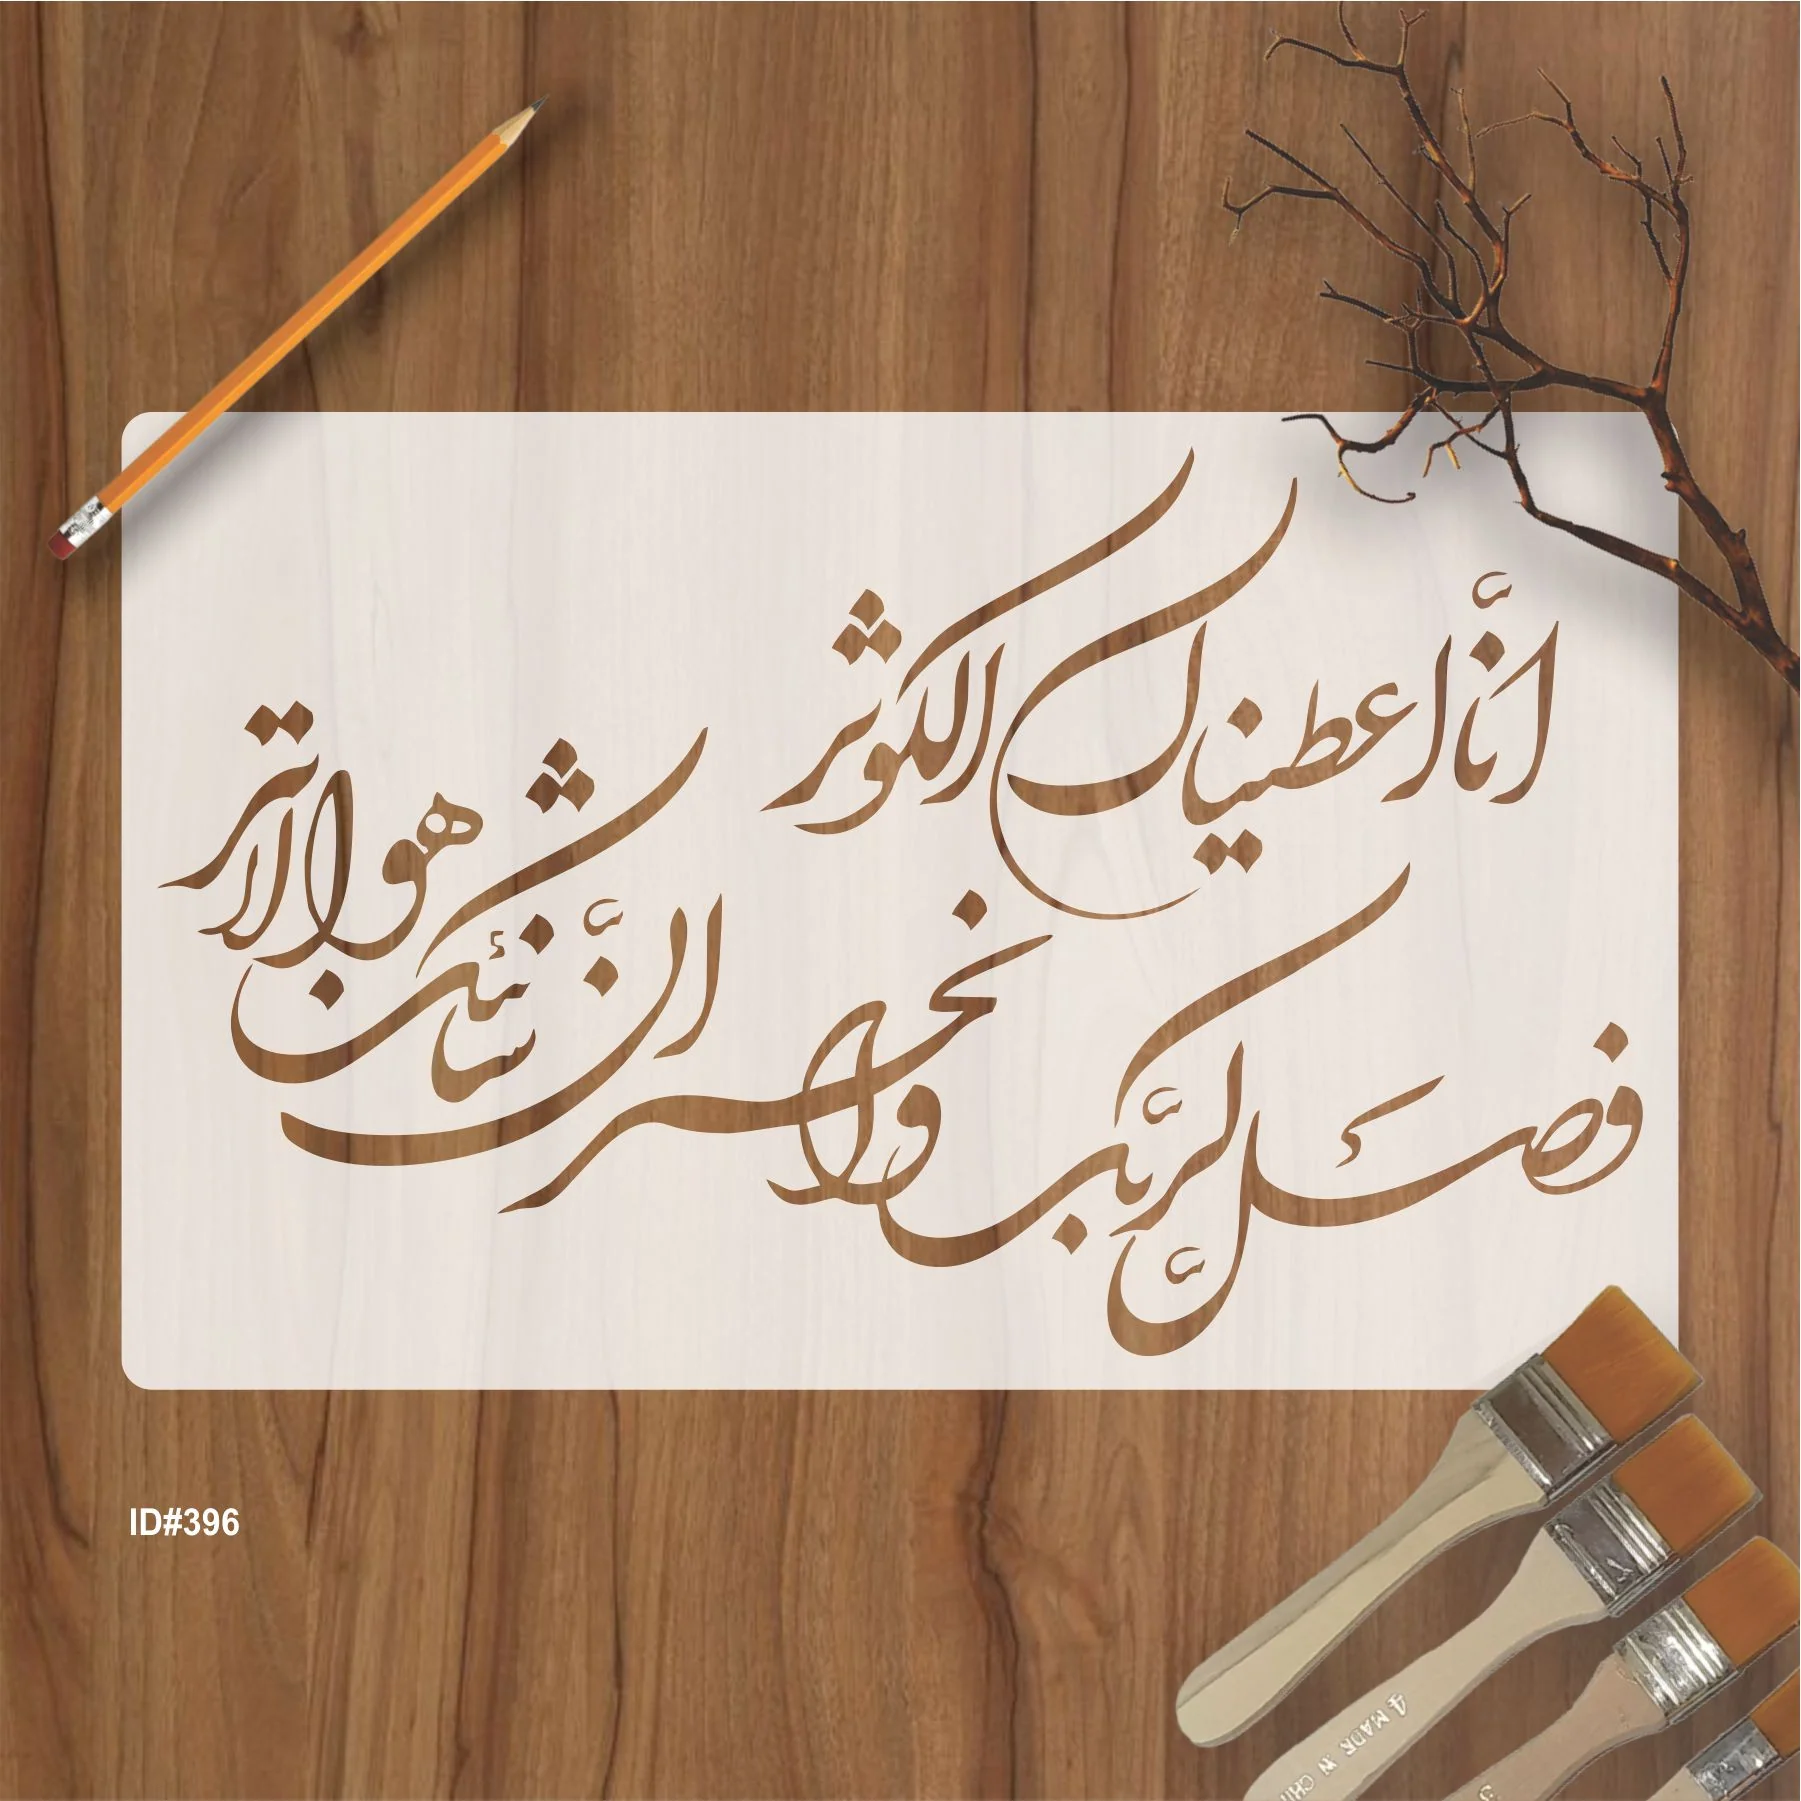 انّا اعطیناک الکوثر
فصَلِّ لربّک وانحر
انّ شانئک هو الابتر
ID#396
4 MADE IN CHI